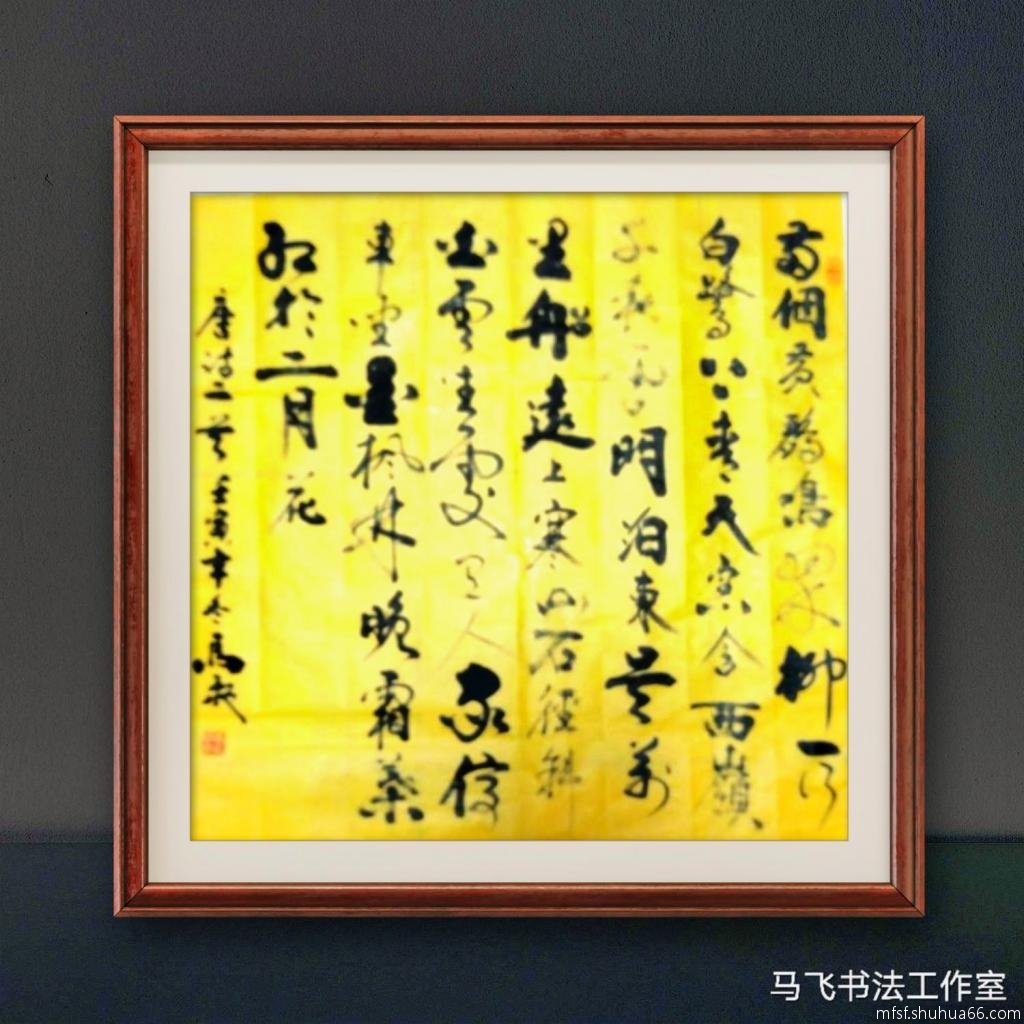 两個黄鸝鳴翠柳一行
白鷺上青天窗含西嶺
千秋雪明泊東吴萬
里船遠上寒山石徑斜
白雲生處有人家停
車坐愛楓林晚霜葉
红於二月花
唐诗二首壬寅年冬馬飛
马飞书法工作室
mfsf.shuhua66.com